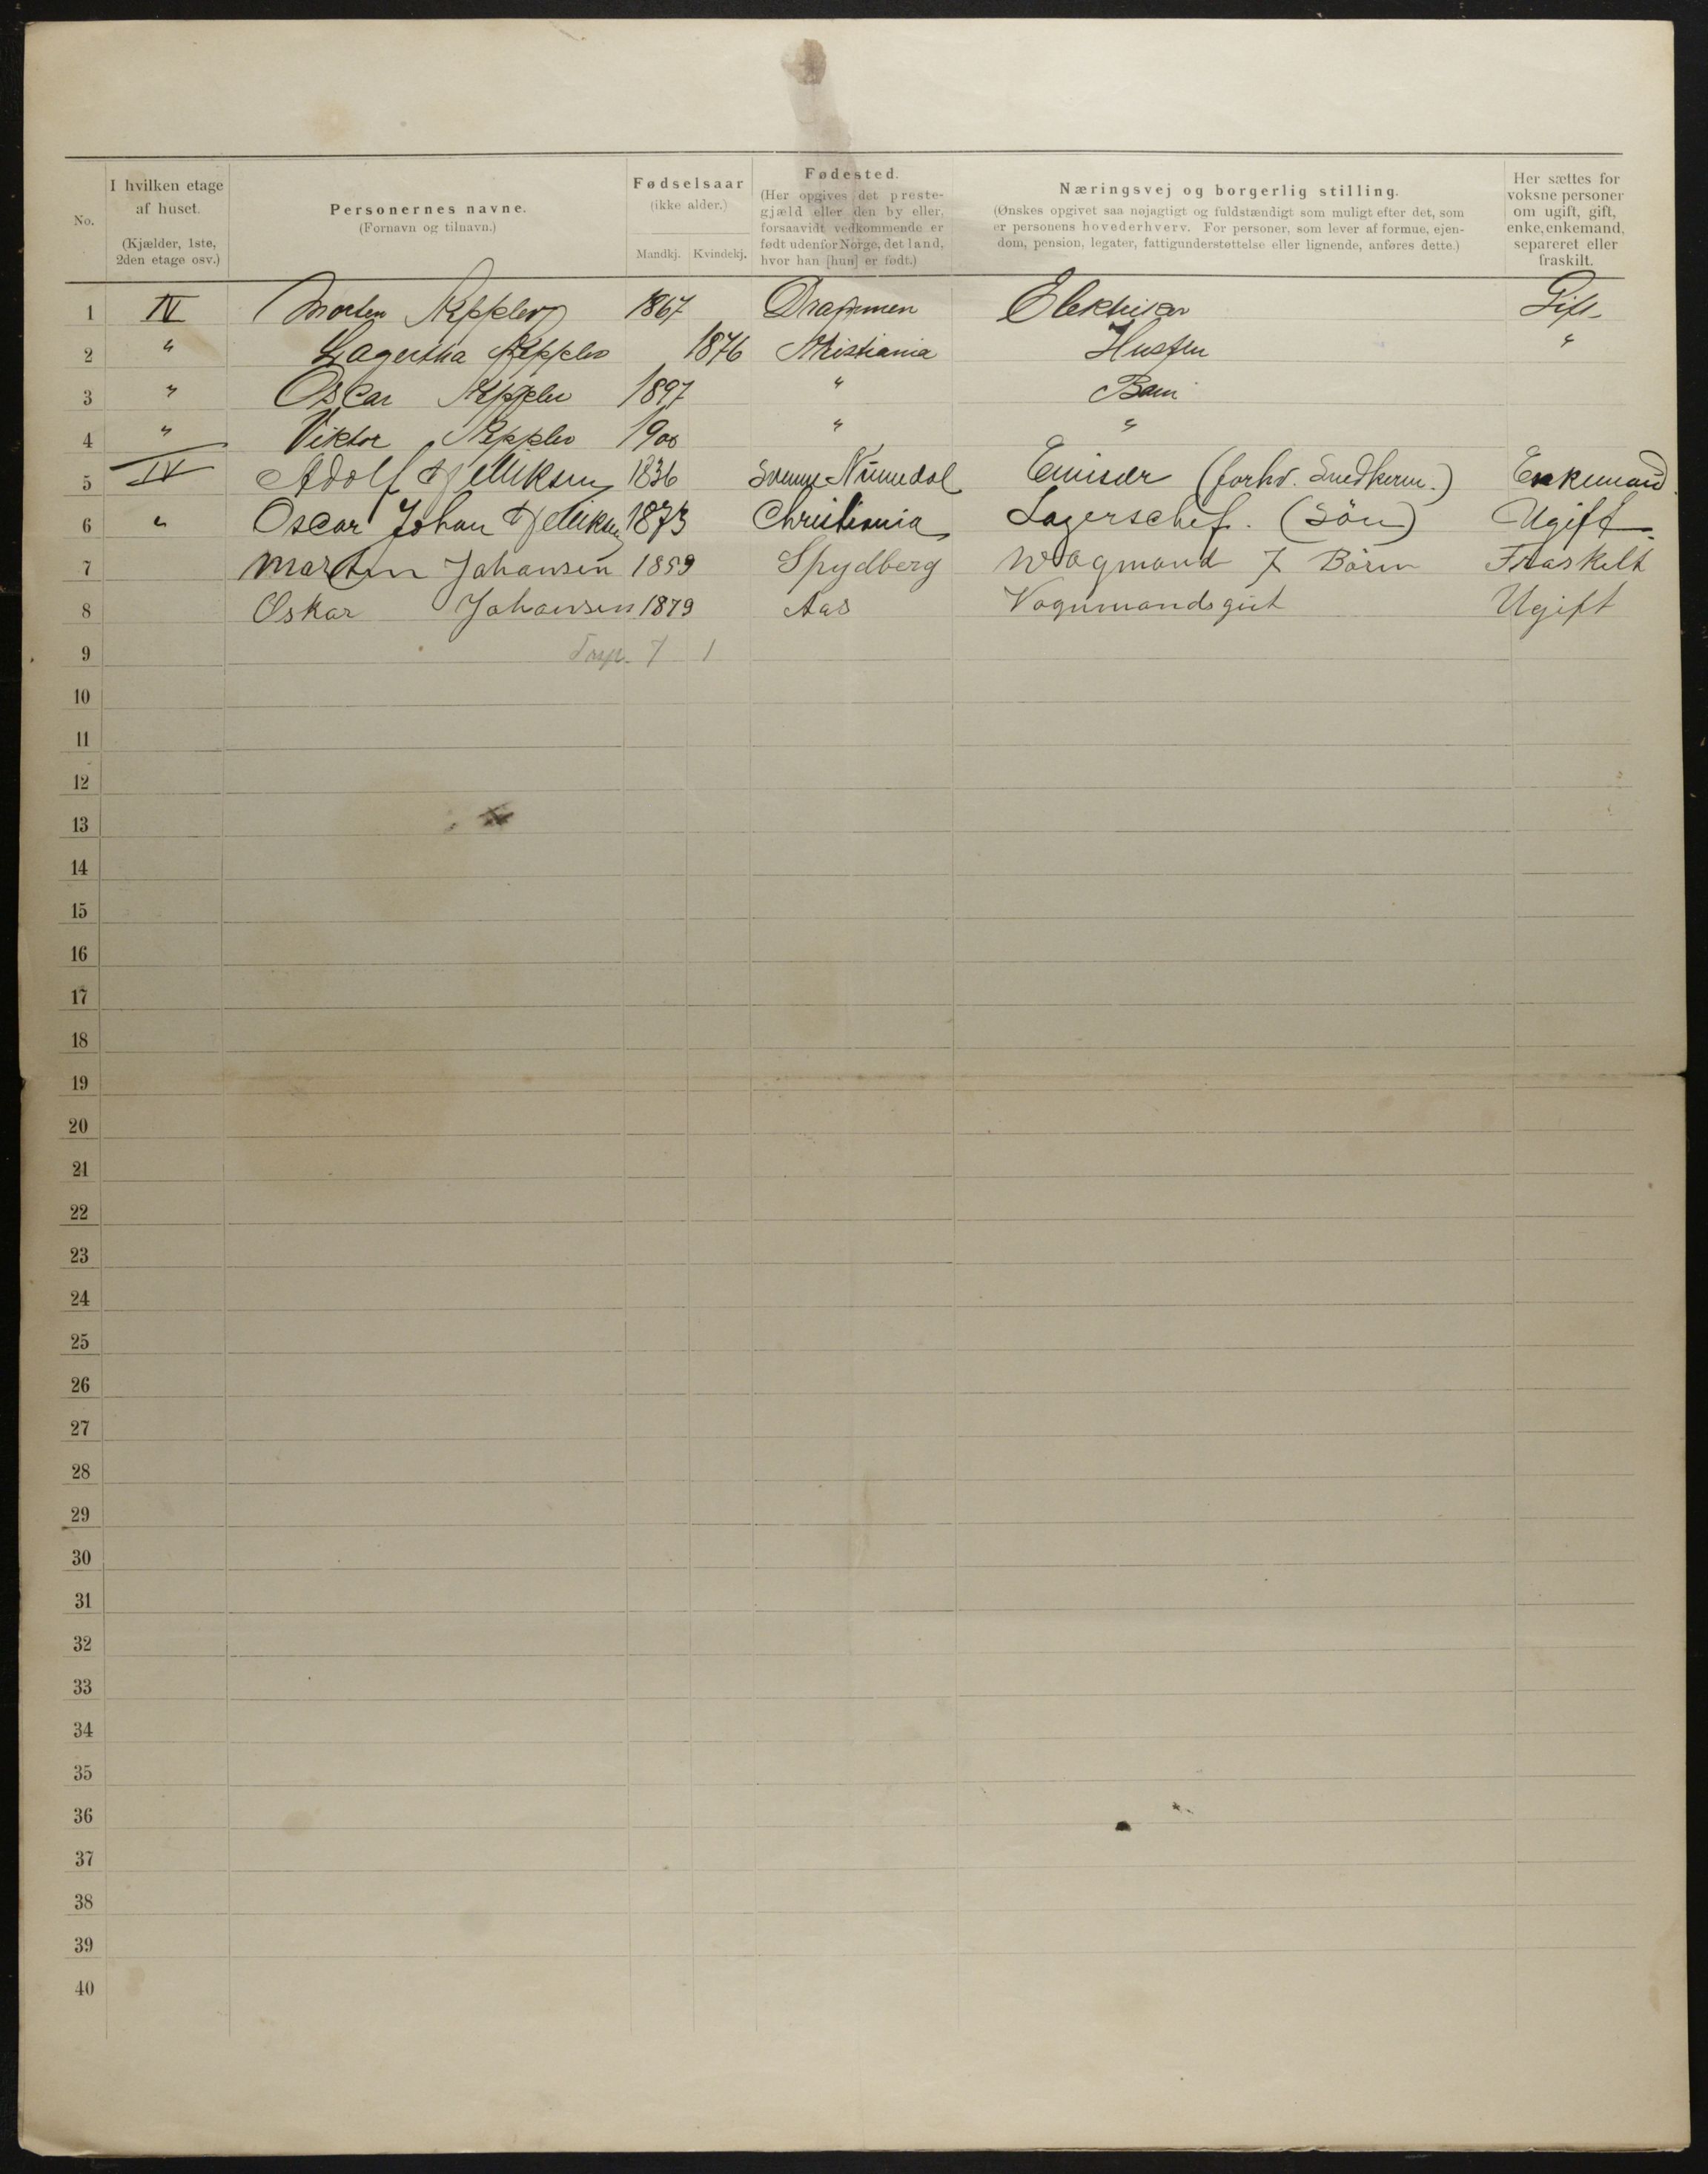 No.
I hvilken etage af huset. (Kjælder, 1ste, 2den etage osv.)
Personernes navne. (Fornavn og tilnavn.)
Fødselsaar (ikke alder.) Mandkj. Kvindekj.
Fødested. (Her opgives det prestegjæld eller den by eller, forsaavidt vedkommende er født udenfor Norge, det land, hvor han [hun] er født.)
Næringsvej og borgerlig stilling. (Ønskes opgivet saa nøjagtigt og fuldstændigt som muligt efter det, som er personens hovederhverv. For personer, som lever af formue, ejendom, pension, legater, fattigunderstøttelse eller lignende, anføres dette.)
Her sættes for voksne personer om ugift, gift, enke, enkemand, separeret eller fraskilt.
1 IV Morten Keppler 1867 Drammen Elektriker Gift
2 " Lagertha Keppler 1876 Kristiania Hustru "
3 " Oscar Keppler 1897 " Barn
4 " Viktor Keppler 1900 " "
5 IV Adolf 1836 Numedal (forhv. Snedkerm.) Enkemand
6 " Oscar Johan 1873 Christiania Lagerschef. (Sön) Ugift
7 Martin Johansen 1859 Spydberg 7 Börn Fraskelt
8 Oskar Johansen 1879 Aas Vognmandsgut Ugift
9 7 1
10
11
12
13
14
15
16
17
18
19
20
21
22
23
24
25
26
27
28
29
30
31
32
33
34
35
36
37
38
39
40